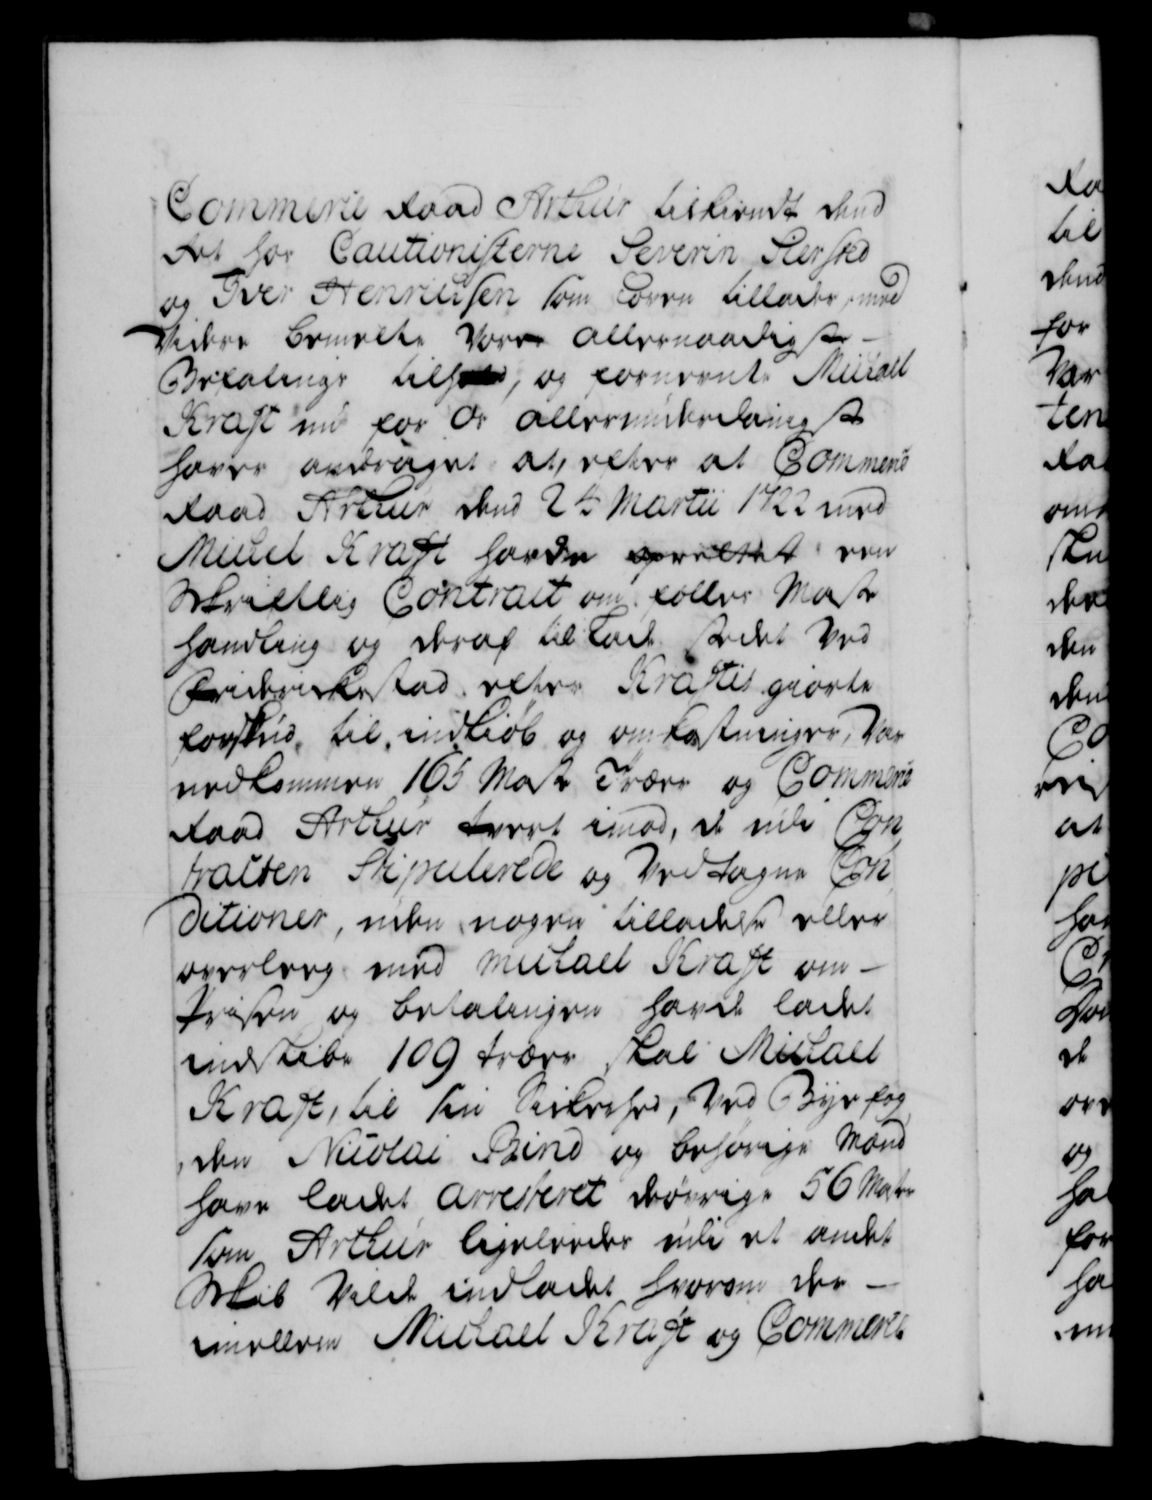 Commercie Raad Arthur tilkiendt dend
Ret hos Cautionisterne Severin Siersted
og Iver Henrichsen som Loven tillader, med
Videre bemelte Vores allernaadigste
Befalinge tilhold, og fornevnte Michael
Kraft nu for Os allerunderdanigst
haver andraget at, efter at Commercie
Raad Arthur dend 24 Martii 1722 med
Michel Kraft havde oprettet een
Skriftlig Contract om felles Maste
handling og deraf til Lade stedet Ved
Friderichstad efter Krafts giorte
forskud til indkiøb og omkostninger, Var
nedkommen 165 Maste Træer og Commercie
Raad Arthur tvert imod, de udi Con
tracten Stipulerede og Vedtagne Con
ditioner, uden nogen tilladelse eller
overleeg med Michael Kraft om
Prisen og betalingen havde ladet
indskibe 109 træer skal Michael
Kraft, til sin Sikerhed, Ved Byefog
den Nicolai Bind og behørige Mænd
have ladet arresteret de øvrige 56 Master
som Arthur ligeleedes udi et andet
Skib Vilde indladet hvorom der
imellem Michael Kraft og Commercie